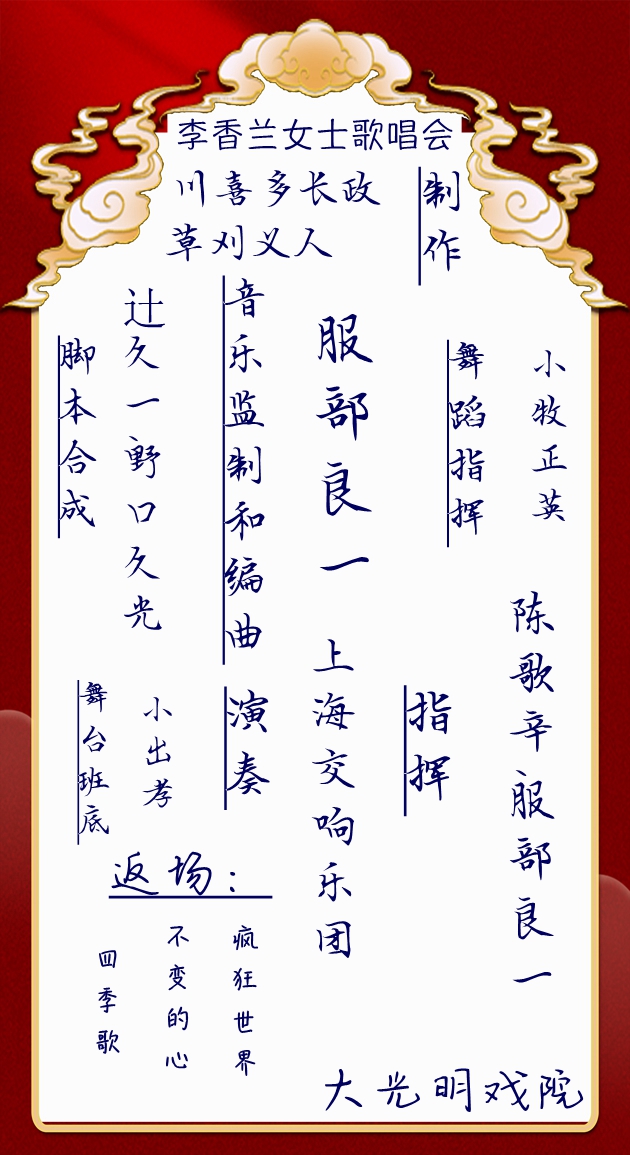 李香兰女士歌唱会
制作
川喜多长政
草刈义人
小牧正英
舞蹈指挥
服部良一
音乐监制和编曲
辻久一野口久光
脚本合成
陈歌辛服部良一
指挥
上海交响乐团
演奏
小出孝
舞台班底
返场：
疯狂世界
不变的心
四季歌
大光明戏院